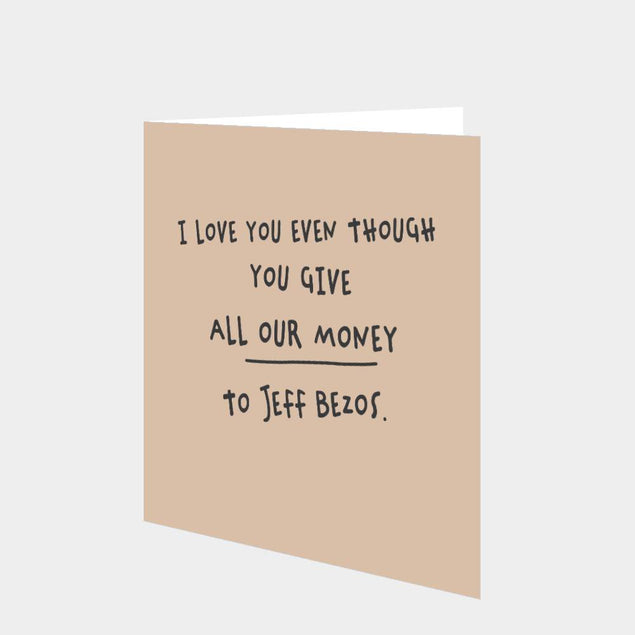 I LOVE YOU EVEN THOUGH
YOU GIVE
ALL OUR MONEY
TO JEFF BEZOS.